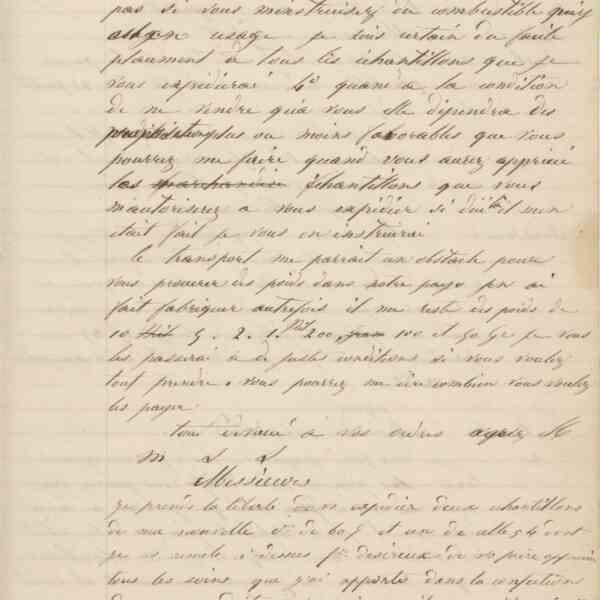 pas si vous m'instruisez du combustible qui
en usage je suis certain du faite
plaument à tous les échantillons que je
vous expédirai 4° quand a la condition
de ne vendre qu'à vous elle dépendra des
plus ou moins favorables que vous
pourrez me faire quand vous aurez apprécié
les marchandise échantillons que vous
m'autoriserez a vous expédier si
était fait je vous en instruirai
le transport me parait un obstacle pour
vous procurer des poids dans notre pays j'en ai
fait fabriquer autrefois il me reste des poids de
10 5. 2. 1. 200, 100 et 50 je vous
les passerai à de justes conditions si vous voulez
tout prendre. vous pourrez me dire combien vous voulez
les payer
tout dévoué à vos ordres agréez M
m s s
Messieurs
je prends la liberté de vs expédier deux échantillons
de ma nouvelle de 60 et un de
je desireux de vs faire apprécier
tous les soins que j'ai apportés dans la confection